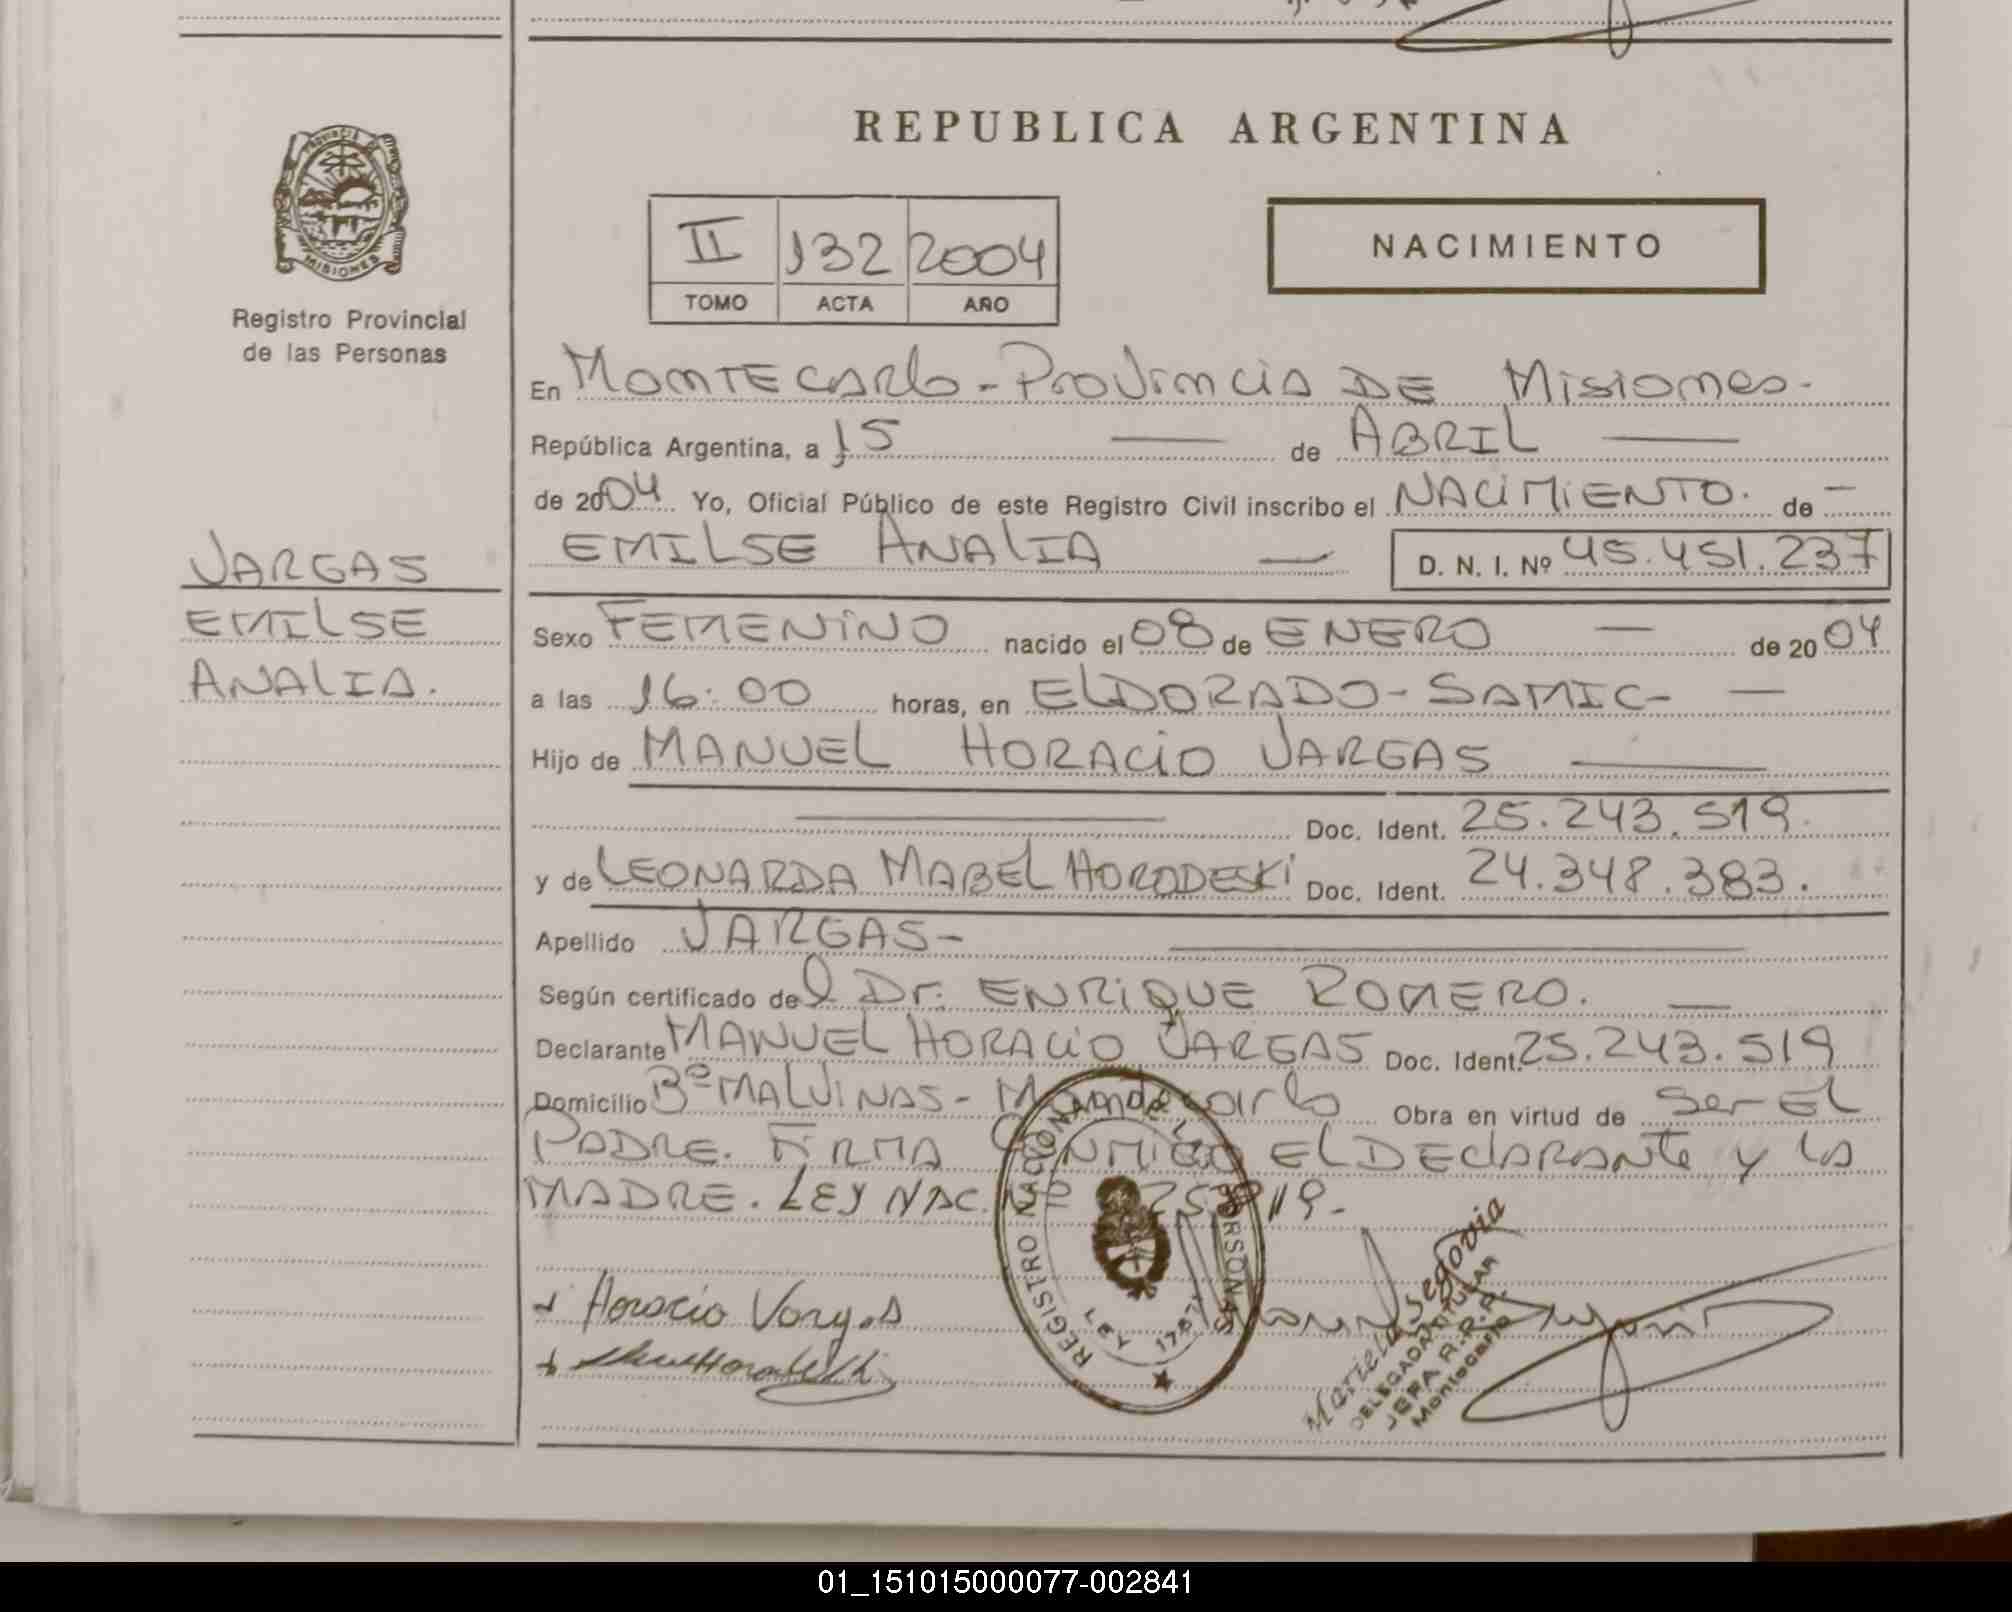 REPUBLICA ARGENTINA
PROVINCIA DE
MISIONES
Registro Provincial
de las Personas
II 132 2004
TOMO ACTA AÑO
NACIMIENTO
En MONTECARLO - PROVINCIA DE MISIONES -
República Argentina, a 15 — de ABRIL —
de 2004 Yo, Oficial Público de este Registro Civil inscribo el NACIMIENTO. de —
EMILSE ANALIA — D. N. I. Nº 45.451.237
VARGAS
EMILSE
ANALIA.
Sexo FEMENINO nacido el 08 de ENERO — de 2004
a las 16:00 horas, en ELDORADO - SAMIC - —
Hijo de MANUEL HORACIO VARGAS —
— Doc. Ident. 25.243.519.
y de LEONARDA MABEL HORODESKI Doc. Ident. 24.348.383.
Apellido VARGAS - —
Según certificado del Dr. ENRIQUE ROMERO. —
Declarante MANUEL HORACIO VARGAS Doc. Ident. 25.243.519
Domicilio Bº MALVINAS - Montecarlo Obra en virtud de Ser EL
PADRE. FIRMA CONMIGO EL DECLARANTE y LA
MADRE. LEY NAC. Nº 25.819.-
REGISTRO NACIONAL DE LAS PERSONAS
Horacio Vargas
Mariela Segovia
DELEGADA TITULAR
JEFA R.P.P.
Montecarlo
01_151015000077-002841